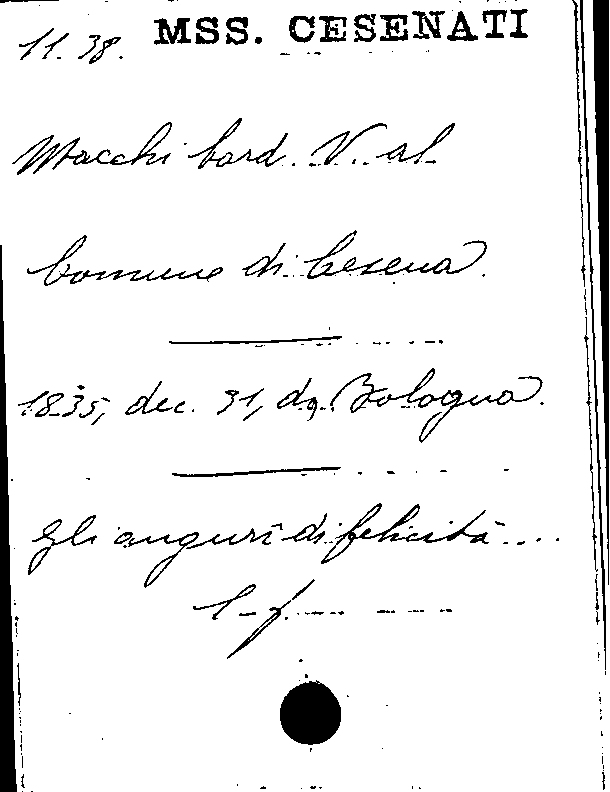 11.38. MSS. CESENATI
Macchi Card. V. al
Comune di Cesena.
1835, dec. 31, da Bologna.
Gli auguri di felicità....
1 f.